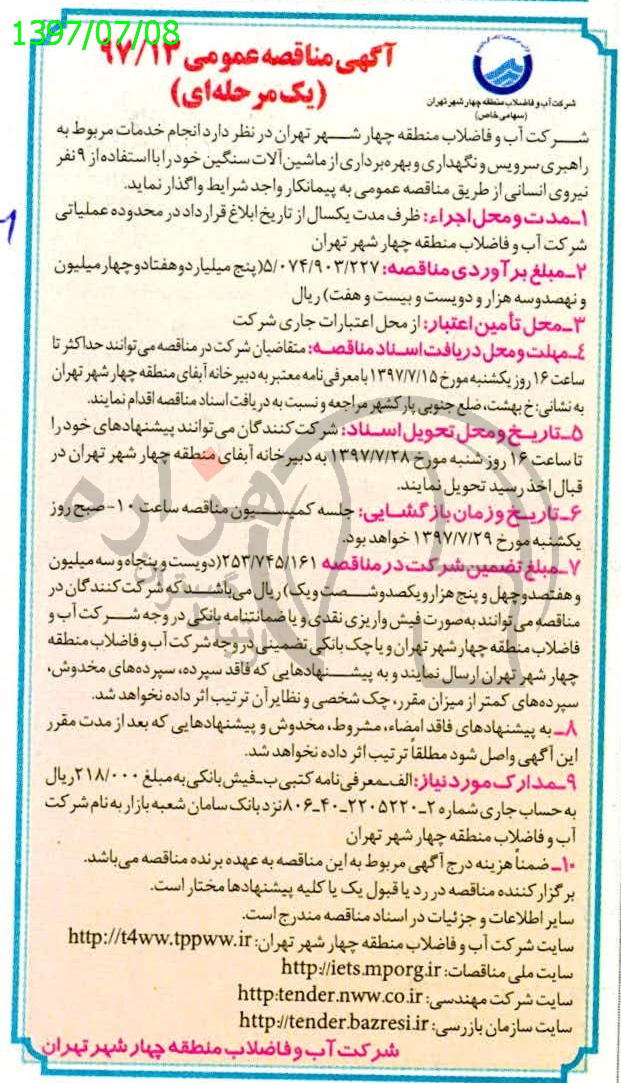 1397/07/08
آگهی مناقصه عمومی ۹۷/۱۳
(یک مرحله‌ای)
شرکت آب و فاضلاب منطقه چهار شهر تهران
(سهامی خاص)
شرکت آب و فاضلاب منطقه چهار شهر تهران در نظر دارد انجام خدمات مربوط به
راهبری سرویس و نگهداری و بهره‌برداری از ماشین‌آلات سنگین خود را با استفاده از ۹ نفر
نیروی انسانی از طریق مناقصه عمومی به پیمانکار واجد شرایط واگذار نماید.
۱ـ مدت و محل اجراء: ظرف مدت یکسال از تاریخ ابلاغ قرارداد در محدوده عملیاتی
شرکت آب و فاضلاب منطقه چهار شهر تهران
۲ـ مبلغ برآوردی مناقصه: ۵/۰۷۴/۹۰۳/۲۲۷ (پنج میلیارد و هفتاد و چهار میلیون
و نهصد و سه هزار و دویست و بیست و هفت) ریال
۳ـ محل تأمین اعتبار: از محل اعتبارات جاری شرکت
٤ـ مهلت و محل دریافت اسناد مناقصه: متقاضیان شرکت در مناقصه می‌توانند حداکثر تا
ساعت ۱۶ روز یکشنبه مورخ ۱۳۹۷/۷/۱۵ با معرفی‌نامه معتبر به دبیرخانه آبفای منطقه چهار شهر تهران
به نشانی: خ بهشت، ضلع جنوبی پارکشهر مراجعه و نسبت به دریافت اسناد مناقصه اقدام نمایند.
۵ـ تاریخ و محل تحویل اسناد: شرکت کنندگان می‌توانند پیشنهادهای خود را
تا ساعت ۱۶ روز شنبه مورخ ۱۳۹۷/۷/۲۸ به دبیرخانه آبفای منطقه چهار شهر تهران در
قبال اخذ رسید تحویل نمایند.
۶ـ تاریخ و زمان بازگشایی: جلسه کمیسیون مناقصه ساعت ۱۰- صبح روز
یکشنبه مورخ ۱۳۹۷/۷/۲۹ خواهد بود.
۷ـ مبلغ تضمین شرکت در مناقصه ۲۵۳/۷۴۵/۱۶۱ (دویست و پنجاه و سه میلیون
و هفتصد و چهل و پنج هزار و یکصد و شصت و یک) ریال می‌باشد که شرکت کنندگان در
مناقصه می‌توانند به‌صورت فیش واریزی نقدی و یا ضمانتنامه بانکی در وجه شرکت آب و
فاضلاب منطقه چهار شهر تهران و یا چک بانکی تضمینی در وجه شرکت آب و فاضلاب منطقه
چهار شهر تهران ارسال نمایند و به پیشنهادهایی که فاقد سپرده، سپرده‌های مخدوش،
سپرده‌های کمتر از میزان مقرر، چک شخصی و نظایر آن ترتیب اثر داده نخواهد شد.
۸ـ به پیشنهادهای فاقد امضاء، مشروط، مخدوش و پیشنهادهایی که بعد از مدت مقرر
این آگهی واصل شود مطلقاً ترتیب اثر داده نخواهد شد.
۹ـ مدارک مورد نیاز: الف‌ـ معرفی‌نامه کتبی ب‌ـ فیش بانکی به مبلغ ۲۱۸/۰۰۰ ریال
به حساب جاری شماره ۲ـ۲۲۰۵۲۲۰ـ۴۰ـ۸۰۶ نزد بانک سامان شعبه بازار به نام شرکت
آب و فاضلاب منطقه چهار شهر تهران
۱۰ـ ضمناً هزینه درج آگهی مربوط به این مناقصه به عهده برنده مناقصه می‌باشد.
برگزارکننده مناقصه در رد یا قبول یک یا کلیه پیشنهادها مختار است.
سایر اطلاعات و جزئیات در اسناد مناقصه مندرج است.
سایت شرکت آب و فاضلاب منطقه چهار شهر تهران: http://t4ww.tppww.ir
سایت ملی مناقصات: http://iets.mporg.ir
سایت شرکت مهندسی: http:tender.nww.co.ir
سایت سازمان بازرسی: http://tender.bazresi.ir
شرکت آب و فاضلاب منطقه چهار شهر تهران
هزاره